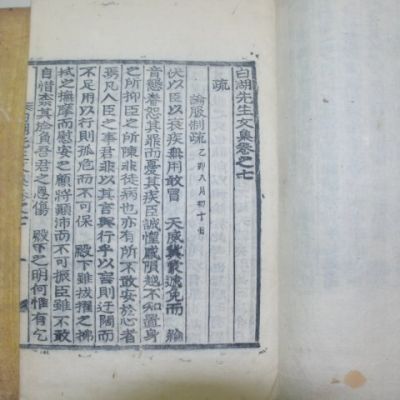 白湖先生文集卷之七
疏
論服制疏 乙卯八月初十日
伏以臣以衰疾無用敢冒 天威冀蒙遞免而 綸
音戀眷恕其罪而憂其疾臣誠惶感隕越不知置身
之所抑臣之所陳非徒病也亦有所不敢安於心者
焉凡人臣之事君非以其言與行乎以言則迂闊而
不足用以行則孤危而不可保 殿下雖拔擢之拂
拭之撫摩而慰安之顧將顚沛而不可振臣雖不敢
自惜柰其於負吾君之恩傷 殿下之明何惟有乞
白湖先生文集卷之七